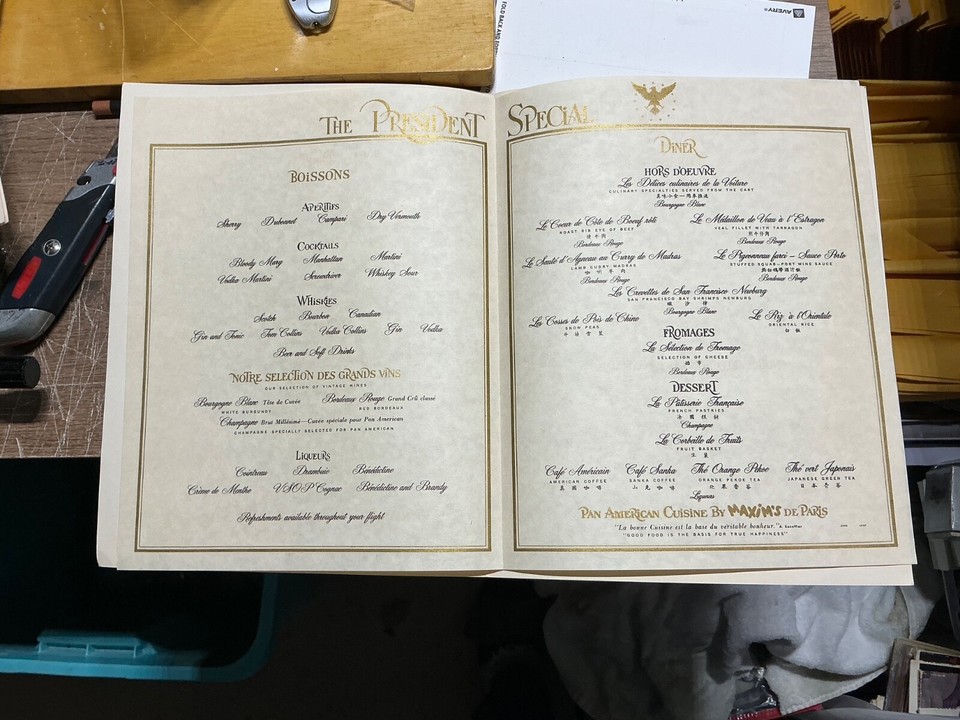 AVERY
THE PRESIDENT SPECIAL
BOISSONS
APERITIFS
Sherry Dubonnet Campari Dry Vermouth
COCKTAILS
Bloody Mary Manhattan Martini
Vodka Martini Screwdriver Whiskey Sour
WHISKIES
Scotch Bourbon Canadian
Gin and Tonic Tom Collins Vodka Collins Gin Vodka
Beer and Soft Drinks
NOTRE SELECTION DES GRANDS VINS
OUR SELECTION OF VINTAGE WINES
Bourgogne Blanc Tête de Cuvée Bordeaux Rouge Grand Crû classé
WHITE BURGUNDY RED BORDEAUX
Champagne Brut Millésimé—Cuvée spéciale pour Pan American
CHAMPAGNE SPECIALLY SELECTED FOR PAN AMERICAN
LIQUEURS
Cointreau Drambuie Bénédictine
Crème de Menthe V.S.O.P. Cognac Bénédictine and Brandy
Refreshments available throughout your flight
DINER
HORS D'OEUVRE
Les Délices culinaires de la Voiture
CULINARY SPECIALTIES SERVED FROM THE CART
Bourgogne Blanc
Le Coeur de Côte de Boeuf rôti Le Médaillon de Veau à l'Estragon
ROAST RIB EYE OF BEEF VEAL FILLET WITH TARRAGON
Bordeaux Rouge Bordeaux Rouge
Le Sauté d'Agneau au Curry de Madras Le Pigeonneau farci – Sauce Porto
LAMB CURRY MADRAS STUFFED SQUAB—PORT WINE SAUCE
咖喱羊肉
Bordeaux Rouge Bordeaux Rouge
Les Crevettes de San Francisco Newburg
SAN FRANCISCO BAY SHRIMPS NEWBURG
Bourgogne Blanc
Les Cosses de Pois de Chine Le Riz à l'Orientale
SNOW PEAS ORIENTAL RICE
白飯
FROMAGES
La Sélection de Fromage
SELECTION OF CHEESE
Bordeaux Rouge
DESSERT
La Pâtisserie Française
FRENCH PASTRIES
法國糕餅
Champagne
La Corbeille de Fruits
FRUIT BASKET
生菓
Café Américain Café Sanka Thé Orange Pekoe Thé vert Japonais
AMERICAN COFFEE SANKA COFFEE ORANGE PEKOE TEA JAPANESE GREEN TEA
美國咖啡 山克咖啡 日本青茶
Liqueurs
PAN AMERICAN CUISINE BY MAXIM'S DE PARIS
"La bonne Cuisine est la base du véritable bonheur."
"GOOD FOOD IS THE BASIS FOR TRUE HAPPINESS"